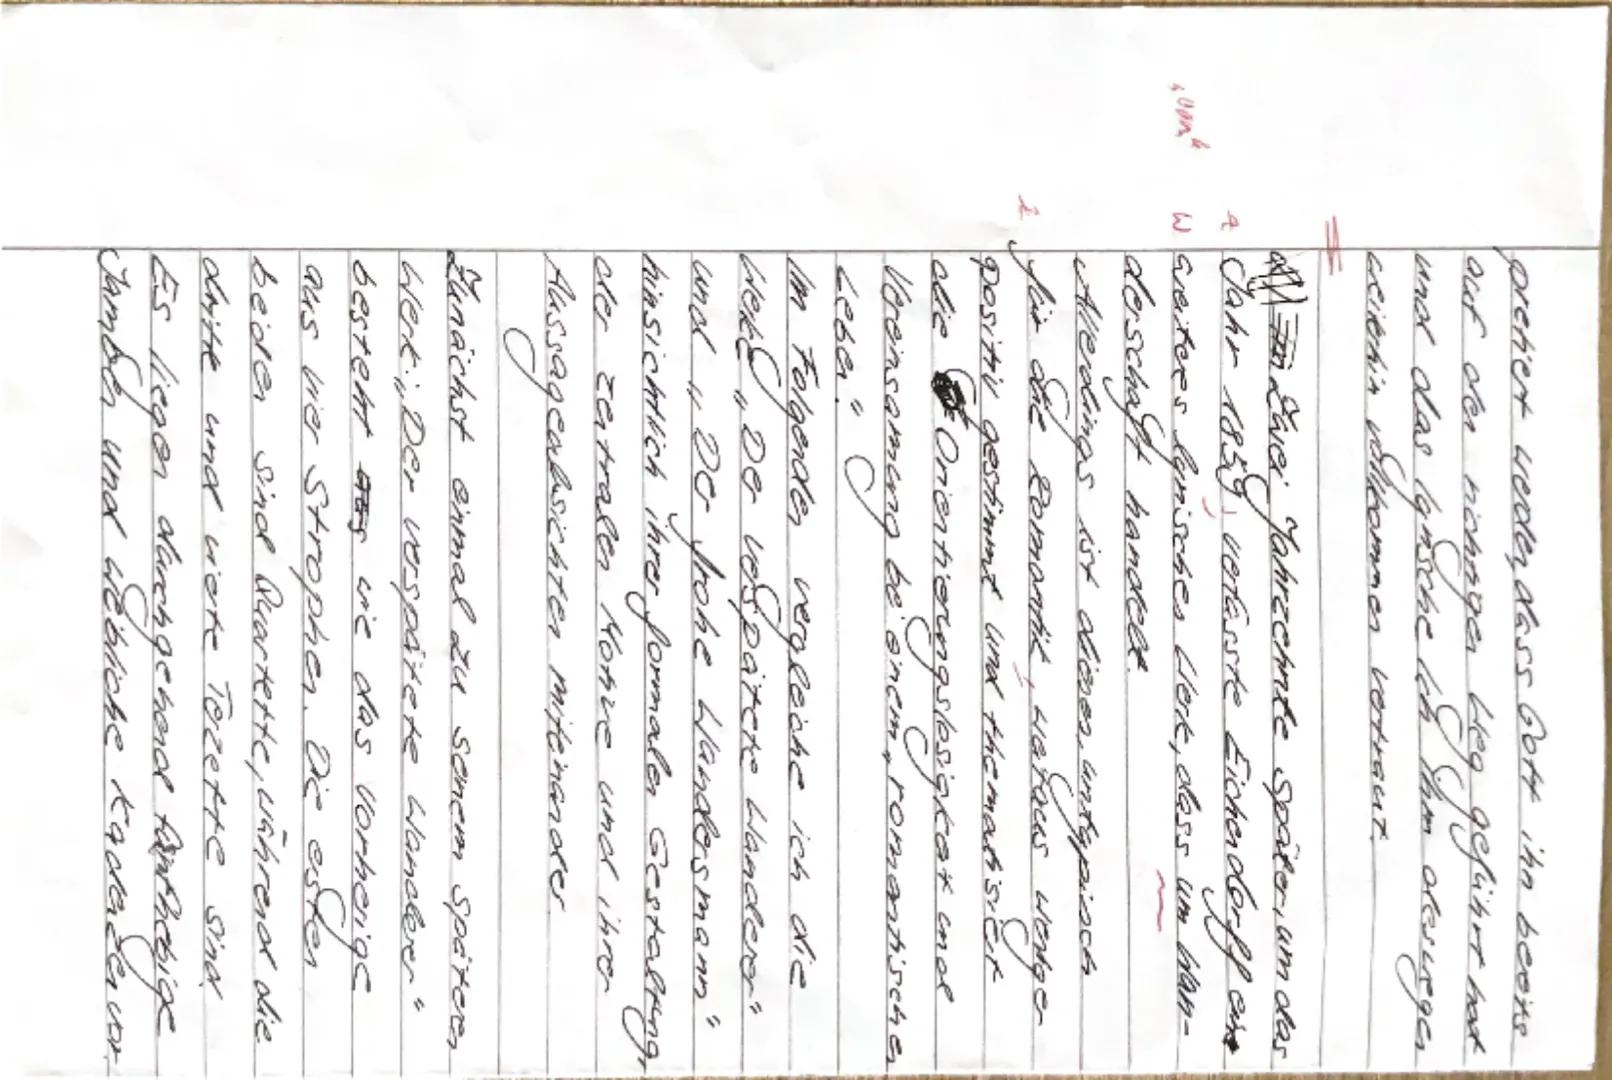 pretiert werden, dass Gott ihn bereits
auf den richtigen Weg geführt hat
und das lyrische Ich ihm deswegen
weiterhin vollkommen vertraut.
Zwei Jahrzehnte später, um das
A Jahr 1859, verfasste Eichendorff ein
"von" W weiteres lyrisches Werk, dass um Wan-
derschaft handelt.
Allerdings ist dieses untypisch
Z für die Romantik, welches weniger
positiv gestimmt und thematisiert
die Orientierungslosigkeit und
Vereinsamung bei einem „romantischen
Leben."
Im Folgenden vergleiche ich die
Werke „Der verspätete Wanderer"
und „Der frohe Wandersmann"
hinsichtlich ihrer formalen Gestaltung,
der zentralen Motive und ihrer
Aussageabsichten miteinander.
Zunächst einmal zu seinem späteren
Werk: „Der verspätete Wanderer"
besteht wie das vorherige
aus vier Strophen. Die ersten
beiden sind Quartette, während die
dritte und vierte Terzette sind.
Es liegen durchgehend fünfhebige
Jamben und weibliche Kadenzen vor.